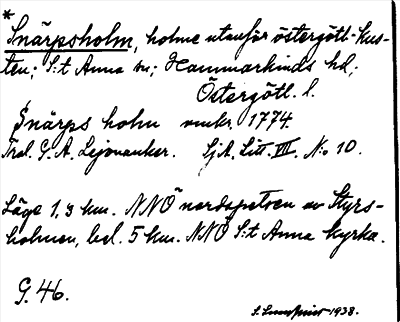 *
Snärpsholm, holme utanför östergötl. kus-
ten; S:t Anna sn; Hammarkinds hd;
Östergötl. l.
Snärps holm omkr. 1774.
Trol. G. A. Lejonancker. Sj.A. Litt. VIII. No 10.
Läge 1,3 km. NNÖ nordspetsen av Styrs-
holmen, bel. 5 km. NNÖ S:t Anna kyrka.
G. 46.
1938.